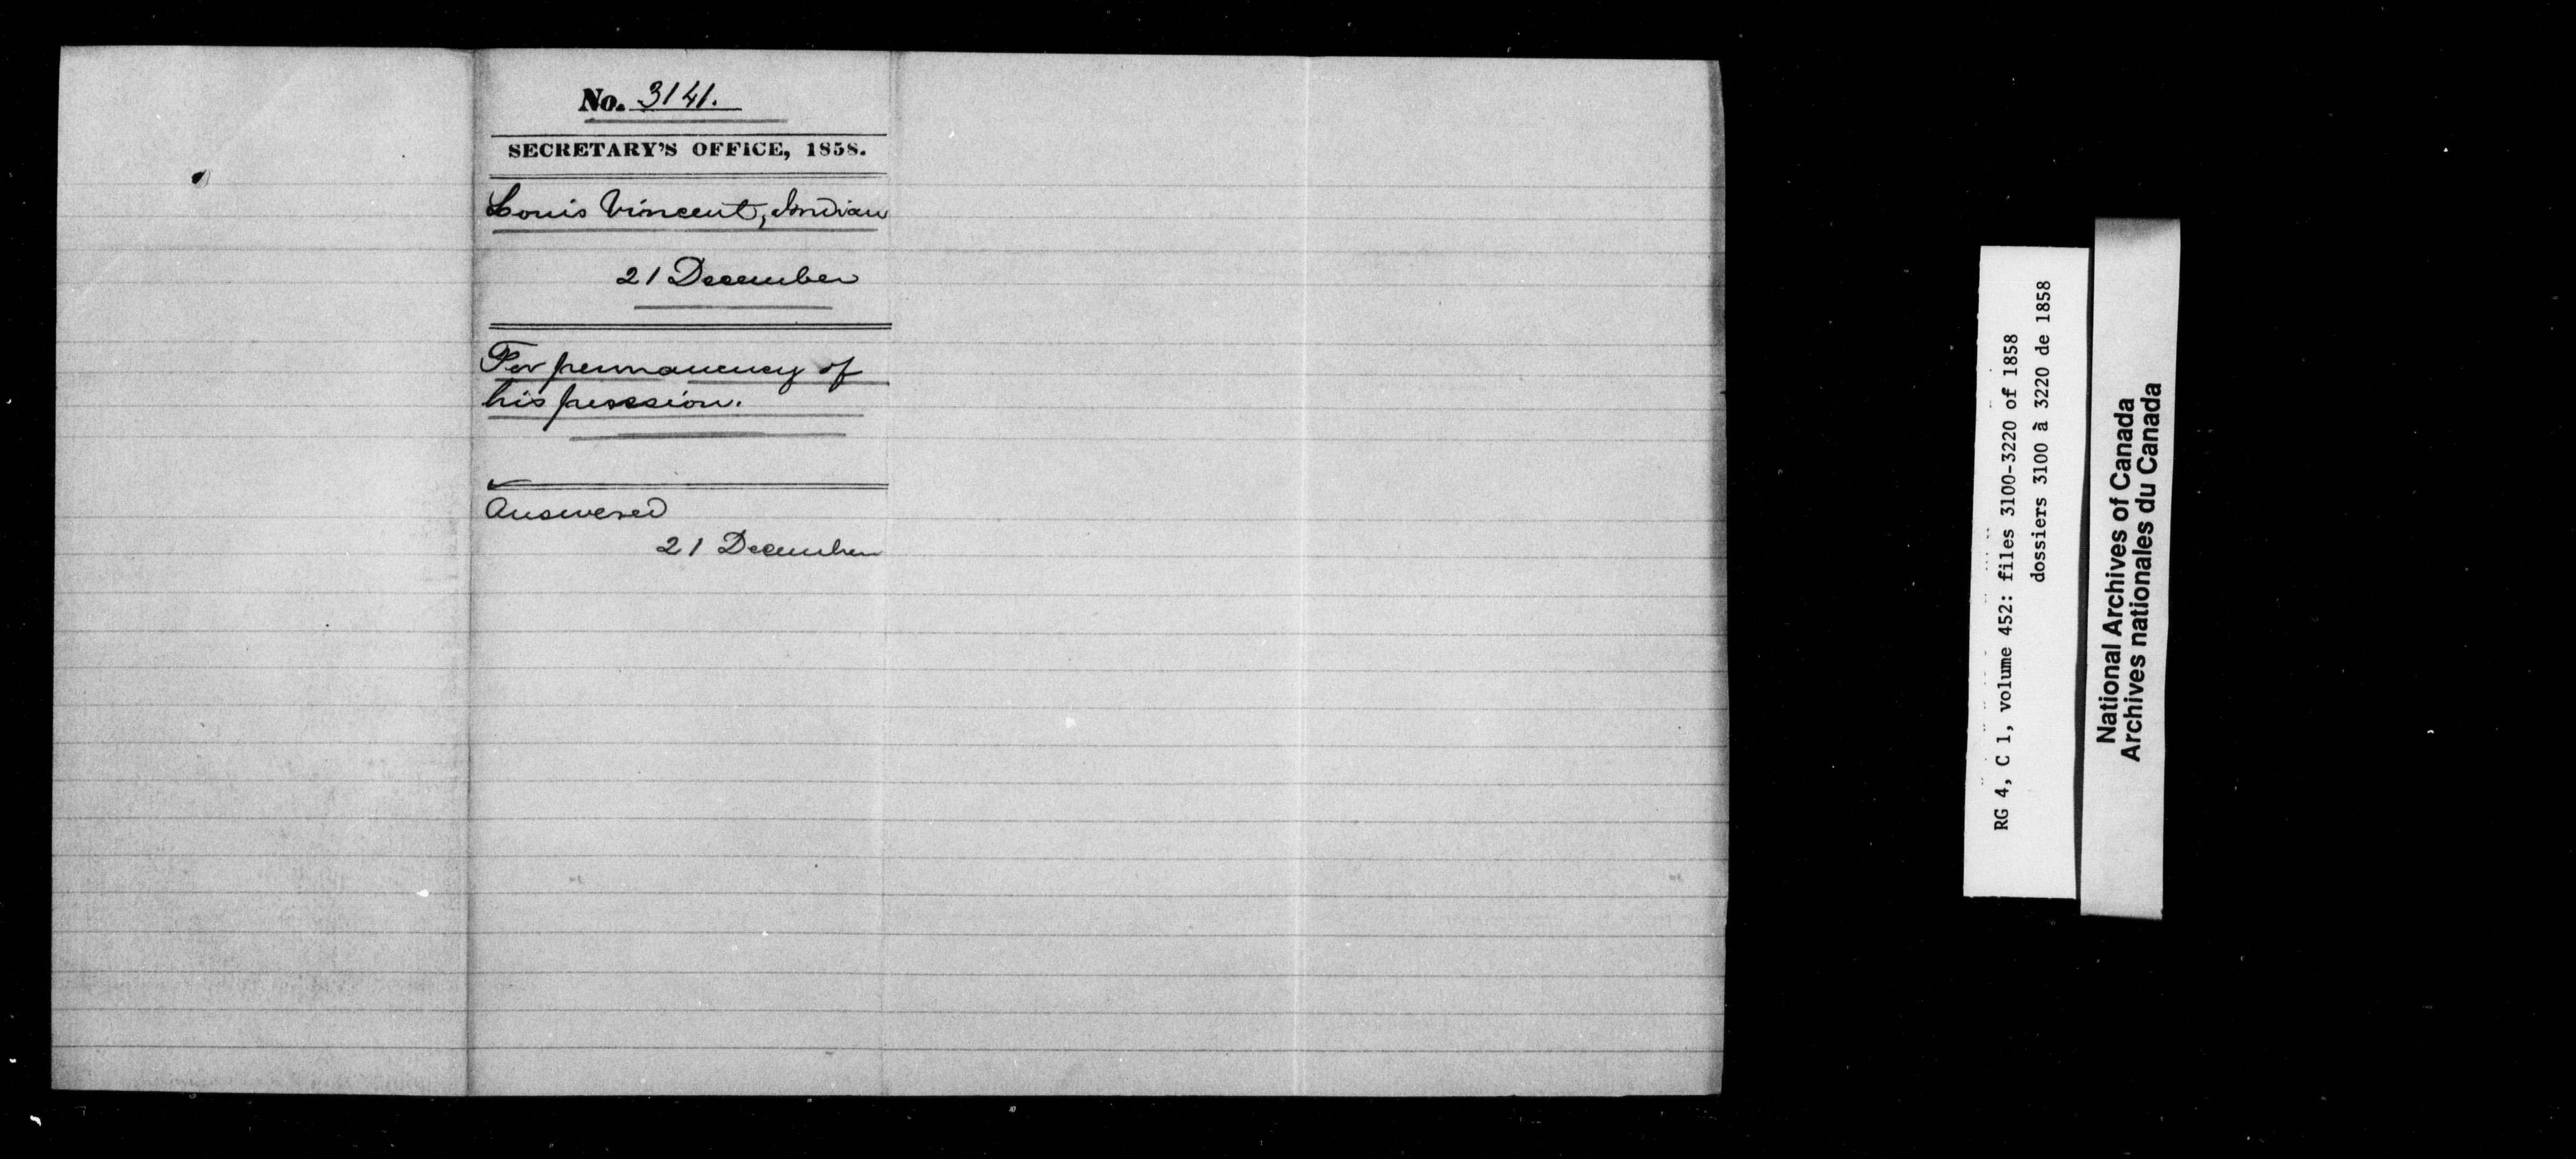 No. 3141.
SECRETARY'S OFFICE, 1858.
Louis Vincent, Indian
21 December
For permanency of
his pension.
Answered
21 December
RG 4, C 1, volume 452: files 3100-3220 of 1858
dossiers 3100 à 3220 de 1858
National Archives of Canada
Archives nationales du Canada